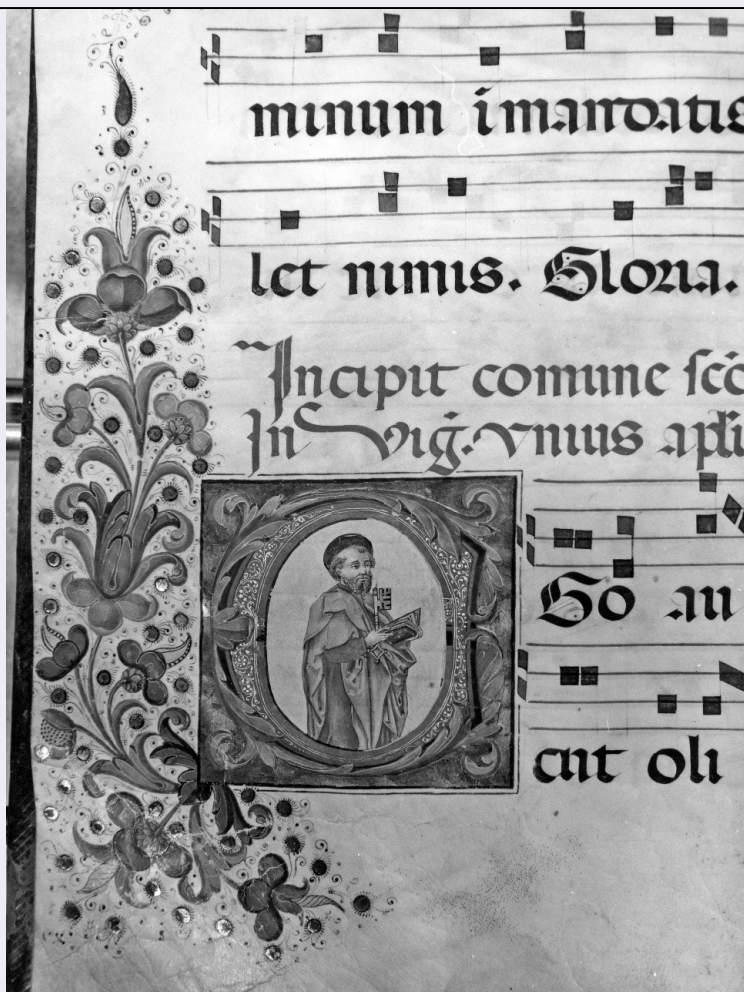 minum ĩ mandatis
let nimis. Gloria.
Incipit comune scõ
In vig̃. vnius apłi
Go au
cut oli